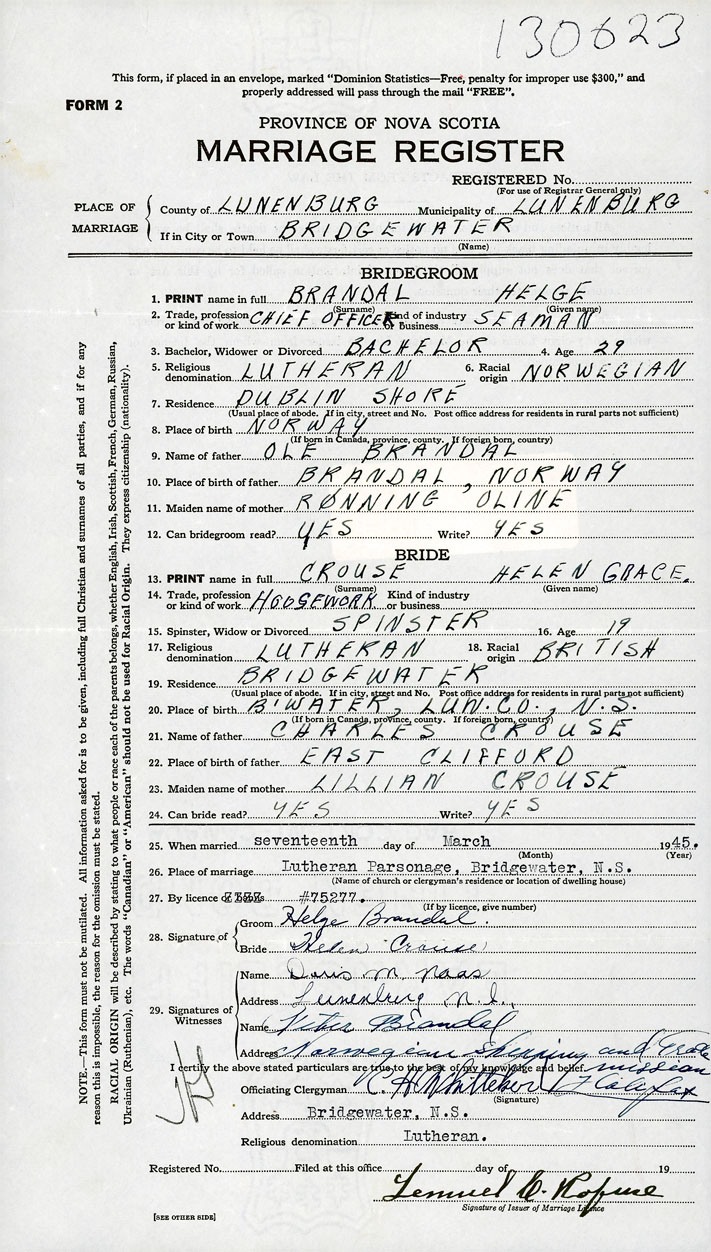 130623
This form, if placed in an envelope, marked "Dominion Statistics—Free, penalty for improper use $300," and
properly addressed will pass through the mail "FREE".
FORM 2
PROVINCE OF NOVA SCOTIA
MARRIAGE REGISTER
REGISTERED No.
(For use of Registrar General only)
PLACE OF MARRIAGE
County of LUNENBURG Municipality of LUNENBURG
If in City or Town BRIDGEWATER
(Name)
BRIDEGROOM
1. PRINT name in full BRANDAL HELGE
(Surname) (Given name)
2. Trade, profession or kind of work CHIEF OFFICER Kind of industry or Business SEAMAN
3. Bachelor, Widower or Divorced BACHELOR 4. Age 29
5. Religious denomination LUTHERAN 6. Racial origin NORWEGIAN
7. Residence DUBLIN SHORE
(Usual place of abode. If in city, street and No. Post office address for residents in rural parts not sufficient)
8. Place of birth NORWAY
(If born in Canada, province, county. If foreign born, country)
9. Name of father OLE BRANDAL
10. Place of birth of father BRANDAL, NORWAY
11. Maiden name of mother RØNNING OLINE
12. Can bridegroom read? YES Write? YES
BRIDE
13. PRINT name in full CROUSE HELEN GRACE.
(Surname) (Given name)
14. Trade, profession or kind of work HOUSEWORK Kind of industry or business
15. Spinster, Widow or Divorced SPINSTER 16. Age 19
17. Religious denomination LUTHERAN 18. Racial origin BRITISH
19. Residence BRIDGEWATER
(Usual place of abode. If in city, street and No. Post office address for residents in rural parts not sufficient)
20. Place of birth B'WATER, LUN. CO., N.S.
(If born in Canada, province, county. If foreign born, country)
21. Name of father CHARLES CROUSE
22. Place of birth of father EAST CLIFFORD
23. Maiden name of mother LILLIAN CROUSE
24. Can bride read? YES Write? YES
25. When married seventeenth day of March 1945.
(Month) (Year)
26. Place of marriage Lutheran Parsonage, Bridgewater, N.S.
(Name of church or clergyman's residence or location of dwelling house)
27. By licence #75277.
(If by licence, give number)
28. Signature of
Groom Helge Brandal.
Bride Helen Crouse
29. Signatures of Witnesses
Name Doris M. Naas
Address Lunenburg N.S.,
Name Brandal
Address Norwegian Shipping and Trade mission
I certify the above stated particulars are true to the best of my knowledge and belief. Halifax
Officiating Clergyman C. H. Whitteker
(Signature)
Address Bridgewater, N.S.
Religious denomination Lutheran.
Registered No. Filed at this office day of 19
Lemuel
Signature of Issuer of Marriage Licence
[SEE OTHER SIDE]
NOTE.—This form must not be mutilated. All information asked for is to be given, including full Christian and surnames of all parties, and if for any
reason this is impossible, the reason for the omission must be stated.
RACIAL ORIGIN will be described by stating to what people or race each of the parents belongs, whether English, Irish, Scottish, French, German, Russian,
Ukrainian (Ruthenian), etc. The words "Canadian" or "American" should not be used for Racial Origin. They express citizenship (nationality).